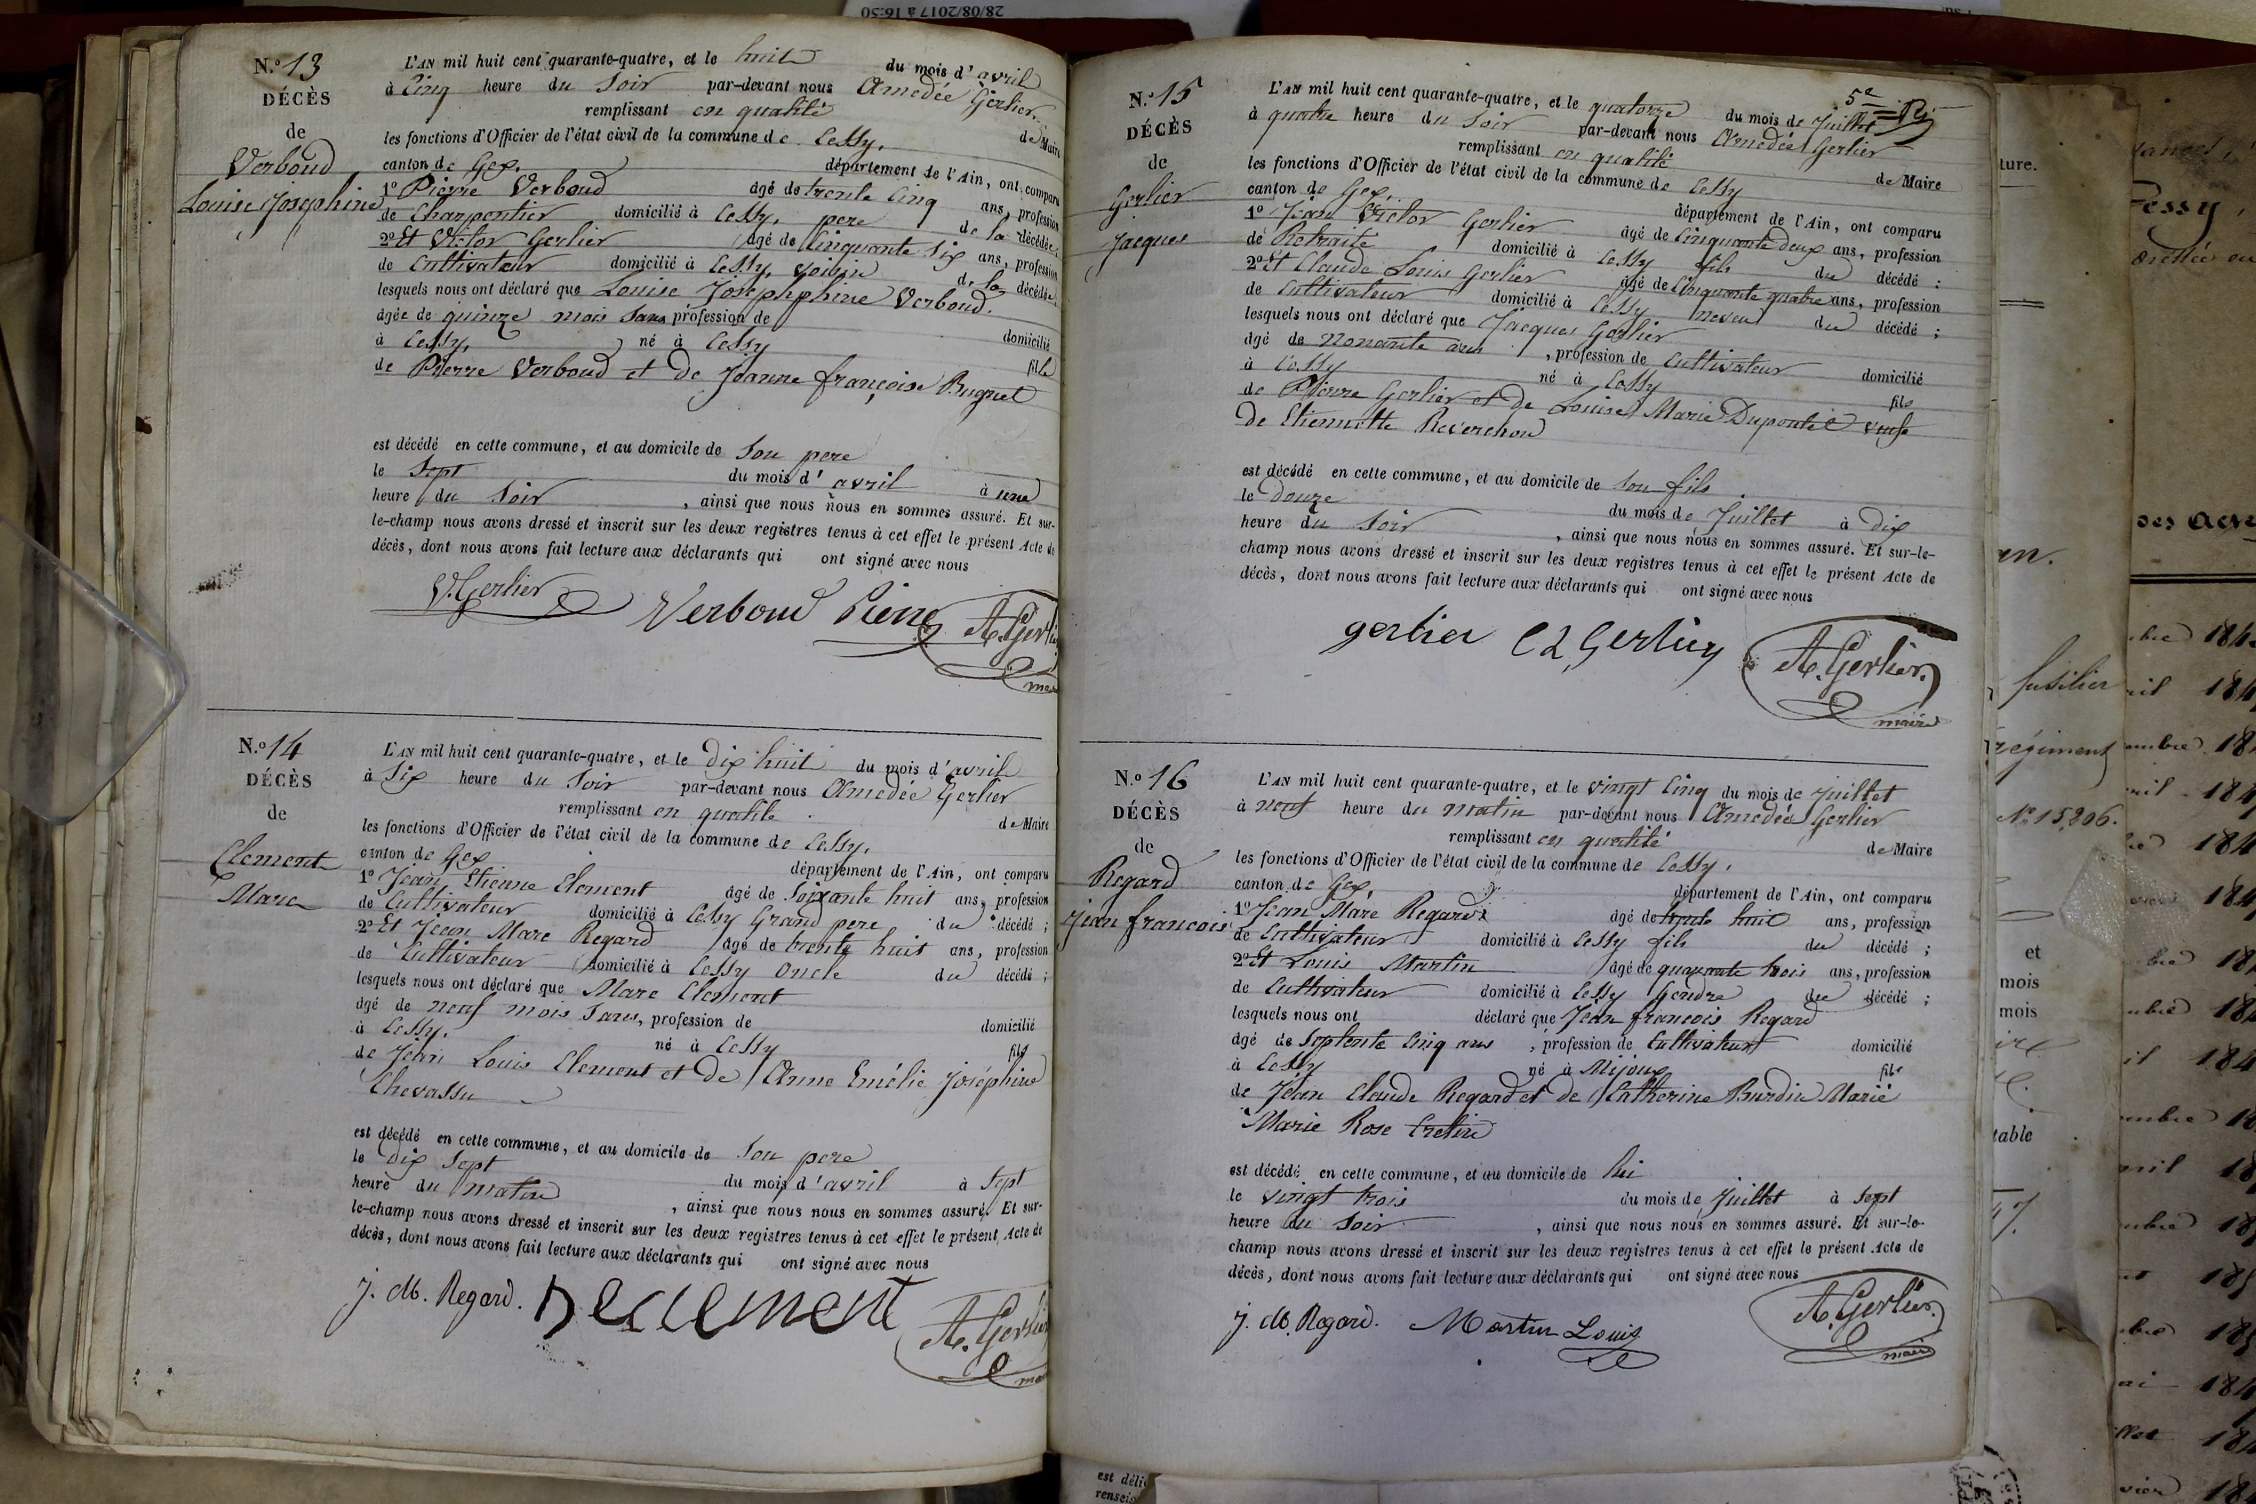 28/08/2017 à 16:50
N.º 13
DÉCÈS
de
Verboud
Louise Josephine
L'AN mil huit cent quarante-quatre, et le huit du mois d'avril
à Cinq heure du Soir par-devant nous Amedée Gerlier
remplissant en qualité de Maire
les fonctions d'Officier de l'état civil de la commune de Cessy,
canton de Gex, département de l'Ain, ont comparu
1º Pierre Verboud âgé de trente Cinq ans, profession
de Charpentier domicilié à Cessy, pere de la décédée
2º Et Victor Gerlier âgé de Cinquante Six ans, profession
de Cultivateur domicilié à Cessy, voisin de la décédée,
lesquels nous ont déclaré que Louise Josephphine Verboud.
âgée de quinze mois Sans profession de domicilié
à Cessy, né à Cessy fille
de Pierre Verboud et de Jeanne françoise Bugnet
est décédé en cette commune, et au domicile de Son pere
le Sept du mois d'avril à une
heure du Soir, ainsi que nous nous en sommes assuré. Et sur-
le-champ nous avons dressé et inscrit sur les deux registres tenus à cet effet le présent Acte de
décès, dont nous avons fait lecture aux déclarants qui ont signé avec nous
V. Gerlier Verboud Pierre A. Gerlier
N.º 14
DÉCÈS
de
Clement
Marc
L'AN mil huit cent quarante-quatre, et le dix huit du mois d'avril
à Six heure du Soir par-devant nous Amedée Gerlier
remplissant en qualité de Maire
les fonctions d'Officier de l'état civil de la commune de Cessy,
canton de Gex département de l'Ain, ont comparu
1º Jean Etienne Clement âgé de Soixante huit ans, profession
de Cultivateur domicilié à Cessy Grand pere du décédé ;
2º Et Jean Marc Regard âgé de trente huit ans, profession
de Cultivateur domicilié à Cessy Oncle du décédé ;
lesquels nous ont déclaré que Marc Clement
âgé de neuf mois Sans, profession de domicilié
à Cessy, né à Cessy fils
de Jean Louis Clement et de Anne Emélie Joséphine
Chevassu
est décédé en cette commune, et au domicile de Son pere
le dix Sept du mois d'avril à Sept
heure du matin, ainsi que nous nous en sommes assuré. Et sur-
le-champ nous avons dressé et inscrit sur les deux registres tenus à cet effet le présent Acte de
décès, dont nous avons fait lecture aux déclarants qui ont signé avec nous
J. M. Regard. A. Gerlier
N.º 15
DÉCÈS
de
Gerlier
Jacques
5e
L'AN mil huit cent quarante-quatre, et le quatorze du mois de Juillet
à quatre heure du Soir par-devant nous Amedée Gerlier
remplissant en qualité de Maire
les fonctions d'Officier de l'état civil de la commune de Cessy
canton de Gex, département de l'Ain, ont comparu
1º Jean Victor Gerlier âgé de Cinquante deux ans, profession
de Retraité domicilié à Cessy fils du décédé ;
2º Et Claude Louis Gerlier âgé de Cinquante quatre ans, profession
de Cultivateur domicilié à Cessy neveu du décédé ;
lesquels nous ont déclaré que Jacques Gerlier
âgé de nonante ans, profession de Cultivateur domicilié
à Cessy né à Cessy fils
de Pierre Gerlier et de Louise Marie Dupontel veuf
de Etiennette Reverchon
est décédé en cette commune, et au domicile de Son fils
le douze du mois de Juillet à dix
heure du Soir, ainsi que nous nous en sommes assuré. Et sur-le-
champ nous avons dressé et inscrit sur les deux registres tenus à cet effet le présent Acte de
décès, dont nous avons fait lecture aux déclarants qui ont signé avec nous
gerlier C L Gerlier A. Gerlier.
maire
N.º 16
DÉCÈS
de
Regard
Jean francois
L'AN mil huit cent quarante-quatre, et le vingt Cinq du mois de Juillet
à neuf heure du matin par-devant nous Amedée Gerlier
remplissant en qualité de Maire
les fonctions d'Officier de l'état civil de la commune de Cessy,
canton de Gex, département de l'Ain, ont comparu
1º Jean Marc Regard âgé de trente huit ans, profession
de Cultivateur domicilié à Cessy fils du décédé ;
2º Et Louis Martin âgé de quarante trois ans, profession
de Cultivateur domicilié à Cessy Gendre du décédé ;
lesquels nous ont déclaré que Jean francois Regard
âgé de Septente Cinq ans, profession de Cultivateur domicilié
à Cessy né à Mijoux fils
de Jean Claude Regard et de Catherine Burdin Marié
Marie Rose Cretin
est décédé en cette commune, et au domicile de lui
le vingt trois du mois de Juillet à Sept
heure du Soir, ainsi que nous nous en sommes assuré. Et sur-le-
champ nous avons dressé et inscrit sur les deux registres tenus à cet effet le présent Acte de
décès, dont nous avons fait lecture aux déclarants qui ont signé avec nous
J. M. Regard. Martin Louis A. Gerlier.
maire
fusilier
régiment
Nº 15,206.
et
mois
mois
table